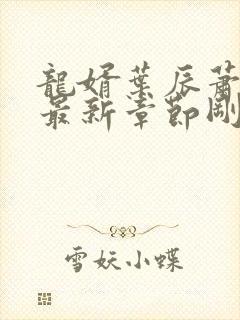 龍婿葉辰蕭
最新章節剛
雪妖小蝶